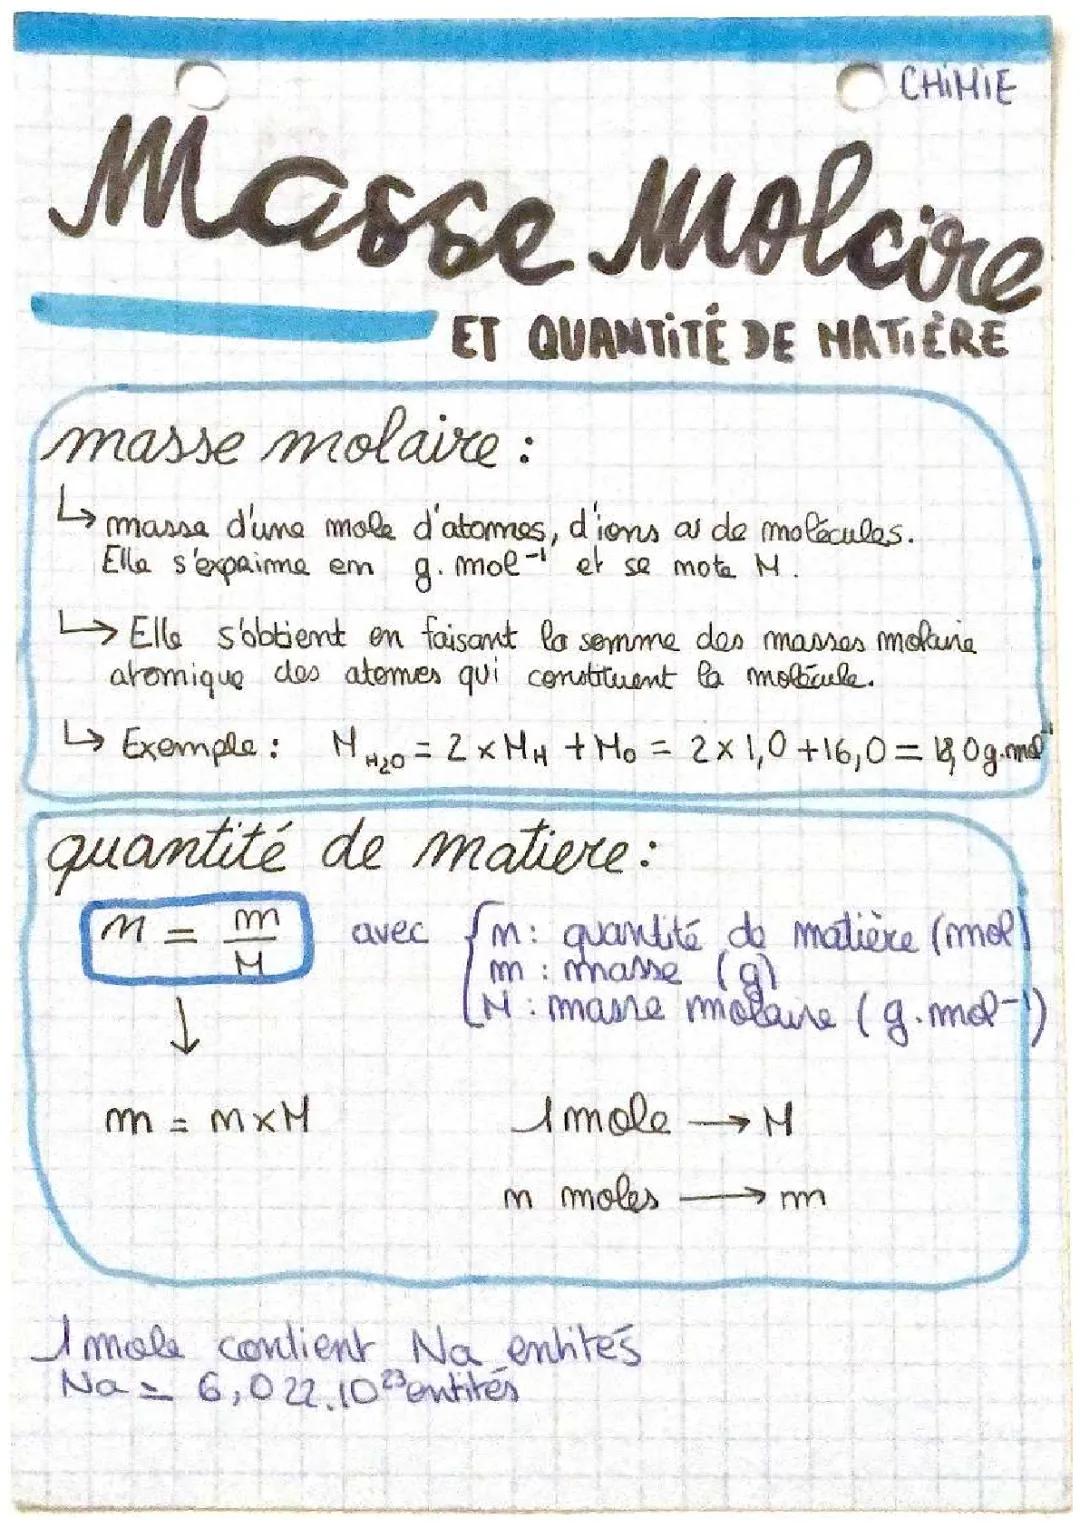 CHIMIE
Masse Molaire
ET QUANTITÉ DE MATIÈRE
masse molaire :
↳ masse d'une mole d'atomes, d'ions ou de molécules.
Elle s'exprime en g.mol⁻¹ et se note M.
↳ Elle s'obtient en faisant la somme des masses molaire
atomique des atomes qui constituent la molécule.
↳ Exemple : M_H₂O = 2 × M_H + M_O = 2 × 1,0 + 16,0 = 18,0 g.mol⁻¹
quantité de matiere :
n = m/M avec { n : quantité de matière (mol)
m : masse (g)
M : masse molaire (g.mol⁻¹)
↓
m = n × M
1 mole → M
n moles → m
1 mole contient Na entités
Na = 6,022.10²³ entités